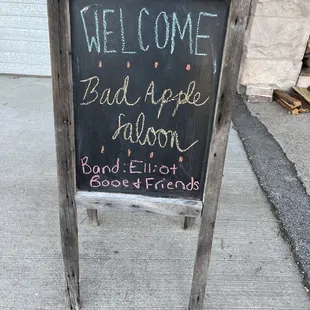 WELCOME
Bad Apple
Saloon
Band: Elliot
Booe & Friends